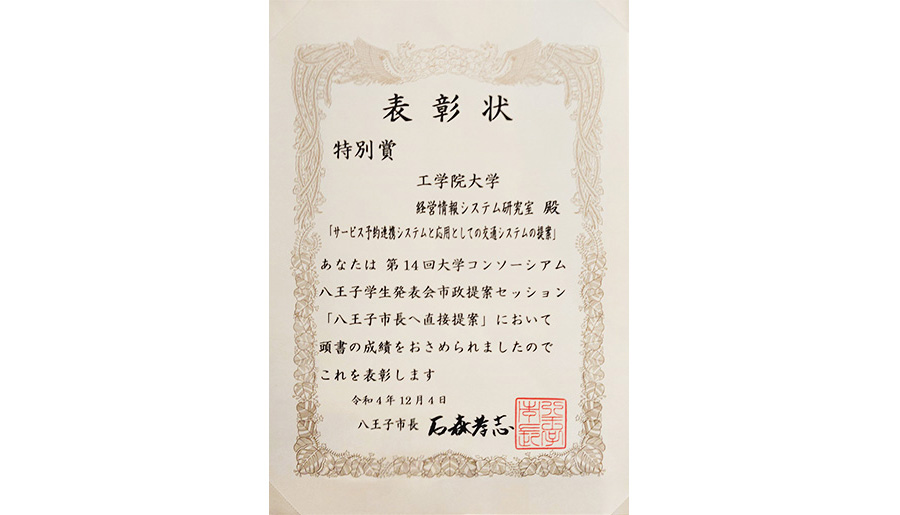 表彰状
特別賞
工学院大学
経営情報システム研究室 殿
「サービス予約連携システムと応用としての交通システムの提案」
あなたは 第14回大学コンソーシアム
八王子学生発表会市政提案セッション
「八王子市長へ直接提案」において
頭書の成績をおさめられましたので
これを表彰します
令和4年12月4日
八王子市長 石森孝志